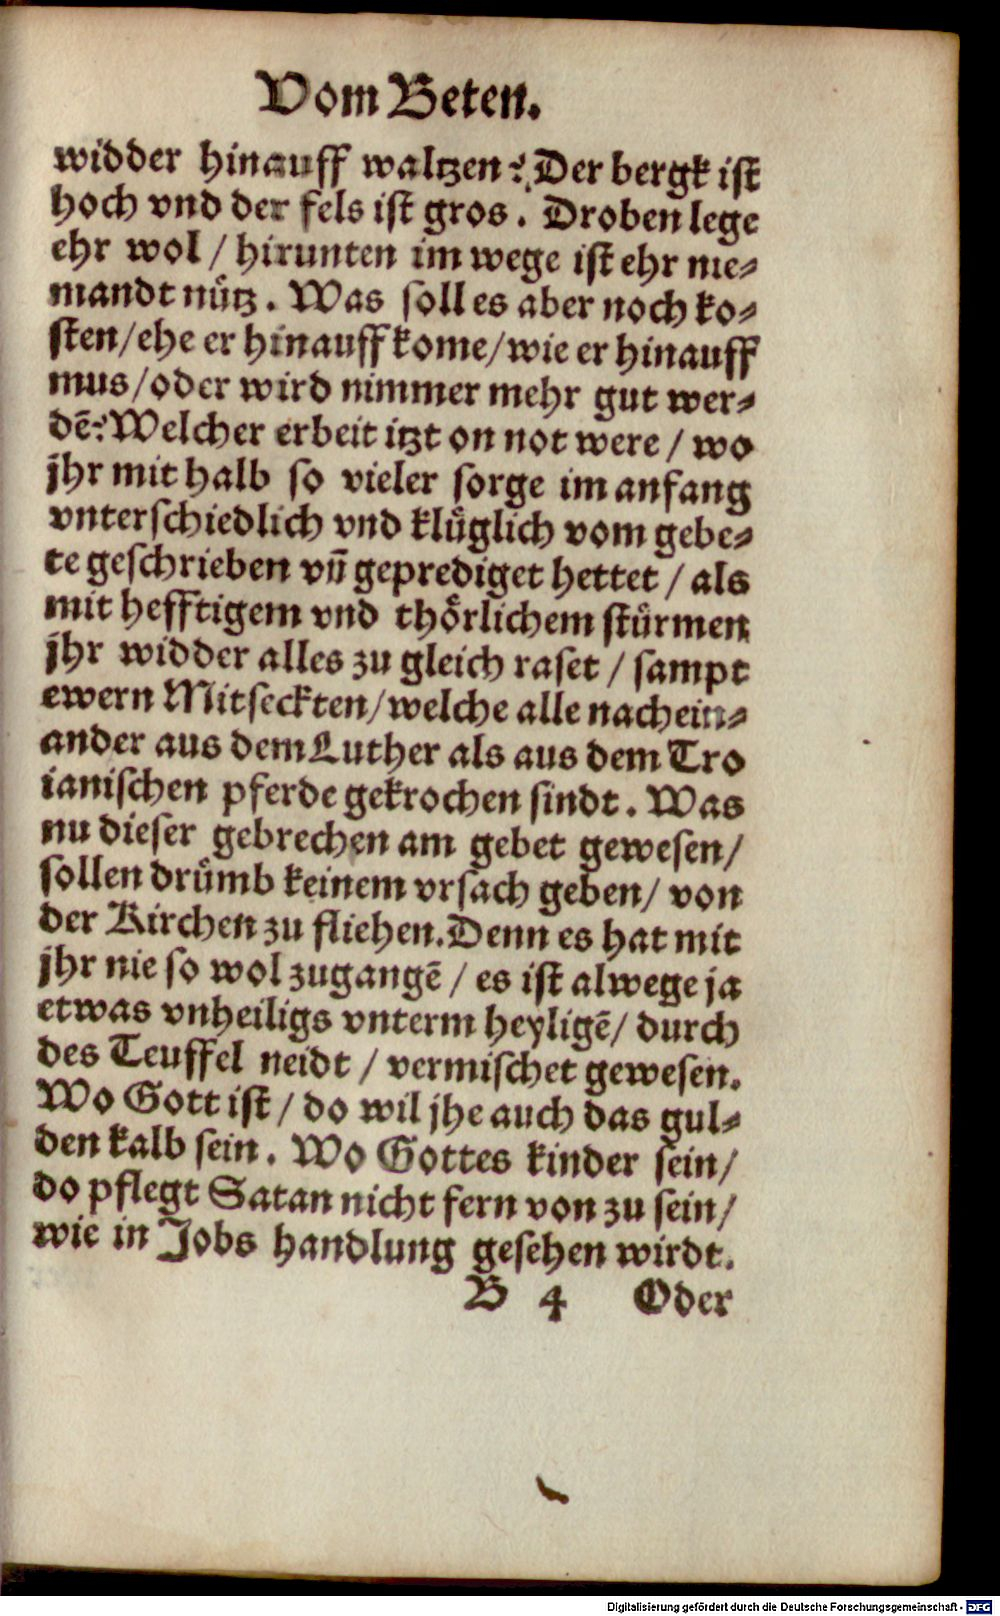 Vom Beten.
widder hinauff waltzen? Der bergk ist
hoch vnd der fels ist gros. Droben lege
ehr wol / hirunten im wege ist ehr nie⸗
mandt nuͤtz. Was soll es aber noch ko⸗
sten/ehe er hinauff kome/wie er hinauff
mus/oder wird nimmer mehr gut wer⸗
dē? Welcher erbeit itzt on not were / wo
jhr mit halb so vieler sorge im anfang
vnterschiedlich vnd kluͤglich vom gebe⸗
te geschrieben vñ geprediget hettet / als
mit hefftigem vnd thoͤrlichem stuͤrmen
jhr widder alles zu gleich raset / sampt
ewern Mitseckten/welche alle nachein⸗
ander aus dem Luther als aus dem Tro
ianischen pferde gekrochen sindt. Was
nu dieser gebrechen am gebet gewesen/
sollen druͤmb keinem vrsach geben/ von
der Kirchen zu fliehen. Denn es hat mit
jhr nie so wol zugangē / es ist alwege ja
etwas vnheiligs vnterm heyligē/ durch
des Teuffel neidt / vermischet gewesen.
Wo Gott ist / do wil jhe auch das gul⸗
den kalb sein. Wo Gottes kinder sein/
do pflegt Satan nicht fern von zu sein/
wie in Jobs handlung gesehen wirdt.
B 4 Oder
Digitalisierung gefördert durch die Deutsche Forschungsgemeinschaft - DFG